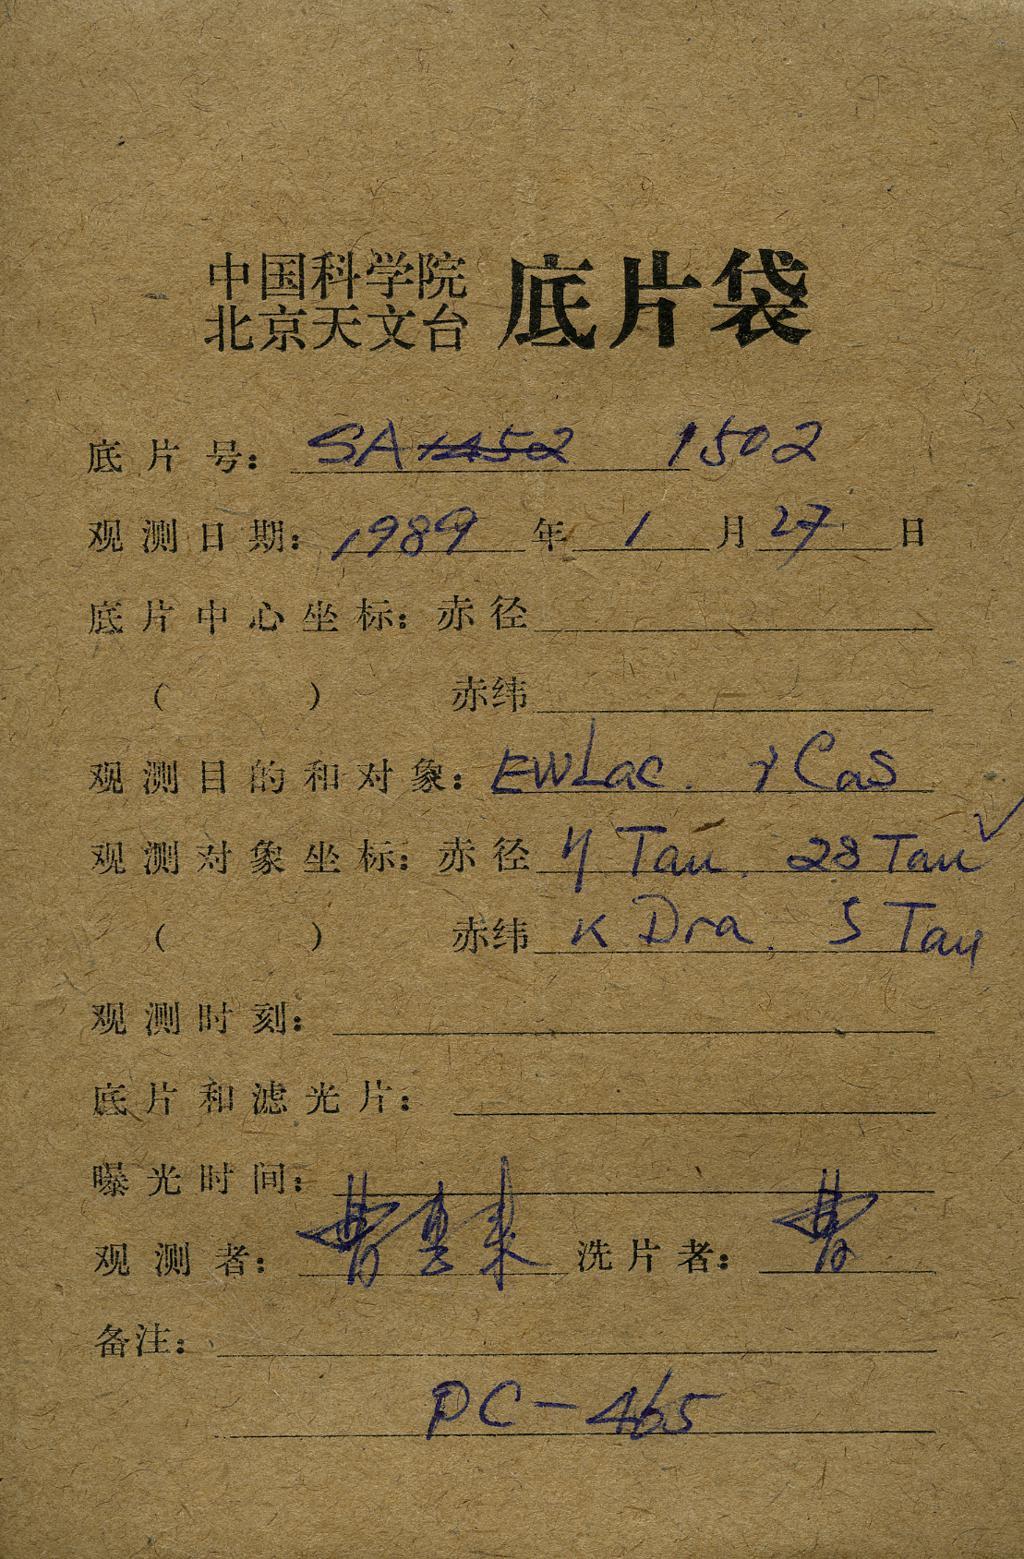 中国科学院
北京天文台
底片袋
底片号: SA 1452 1502
观测日期: 1989 年 1 月 27 日
底片中心坐标: 赤径
( ) 赤纬
观测目的和对象: EW Lac. γ Cas
观测对象坐标: 赤径 η Tau. 28 Tau ✓
( ) 赤纬 κ Dra. 5 Tau
观测时刻:
底片和滤光片:
曝光时间:
观测者: 曹 洗片者: 曹
备注:
PC-465